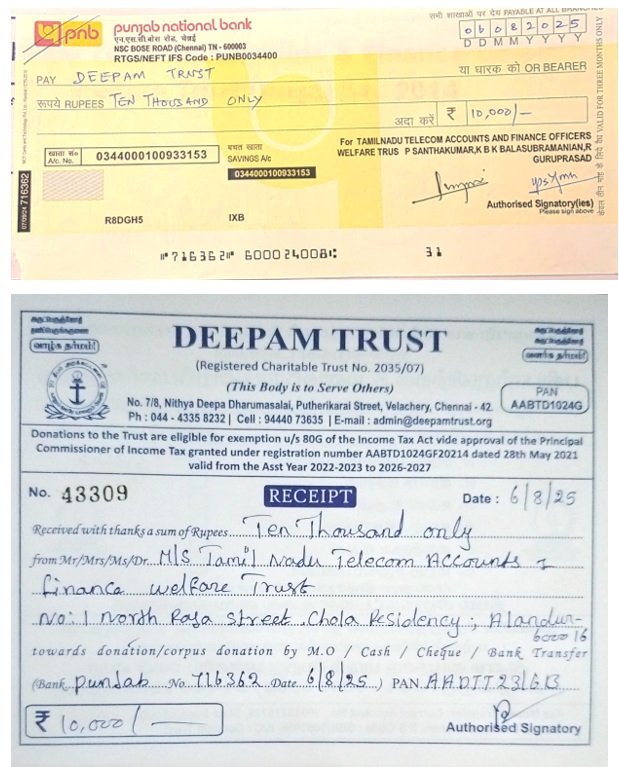 सभी शाखाओं पर देय PAYABLE AT ALL BRANCHES
pnb punjab national bank
एन.एस.सी.बोस रोड, चेन्नई
NSC BOSE ROAD (Chennai) TN - 600003
RTGS/NEFT IFS Code : PUNB0034400
06082025
D D M M Y Y Y Y
PAY DEEPAM TRUST या धारक को OR BEARER
रूपये RUPEES TEN THOUSAND ONLY
अदा करें ₹ 10,000/-
खाता सं० A/c. No. 0344000100933153
बचत खाता
SAVINGS A/c
0344000100933153
For TAMILNADU TELECOM ACCOUNTS AND FINANCE OFFICERS
WELFARE TRUS P SANTHAKUMAR,K B K BALASUBRAMANIAN,R
GURUPRASAD
R8DGH5 IXB
Authorised Signatory(ies)
Please sign above
07/09/24 716362
VALID FOR THREE MONTHS ONLY
⑈716362⑈ 600024008⑆ 31
வாழ்க தர்மம்!
DEEPAM TRUST
(Registered Charitable Trust No. 2035/07)
(This Body is to Serve Others)
No. 7/8, Nithya Deepa Dharumasalai, Putherikarai Street, Velachery, Chennai - 42.
Ph : 044 - 4335 8232 | Cell : 94440 73635 | E-mail : admin@deepamtrust.org
PAN
AABTD1024G
Donations to the Trust are eligible for exemption u/s 80G of the Income Tax Act vide approval of the Principal
Commissioner of Income Tax granted under registration number AABTD1024GF20214 dated 28th May 2021
valid from the Asst Year 2022-2023 to 2026-2027
No. 43309 RECEIPT Date : 6/8/25
Received with thanks a sum of Rupees Ten Thousand only
from Mr/Mrs/Ms/Dr. M/S Tamil Nadu Telecom Accounts &
finance welfare Trust
No: 1 North Raja Street, Chola Residency, Alandur-
600016
towards donation/corpus donation by M.O / Cash / Cheque / Bank Transfer
(Bank Punjab No. 716362 Date 6/8/25) PAN
₹ 10,000/-
Authorised Signatory